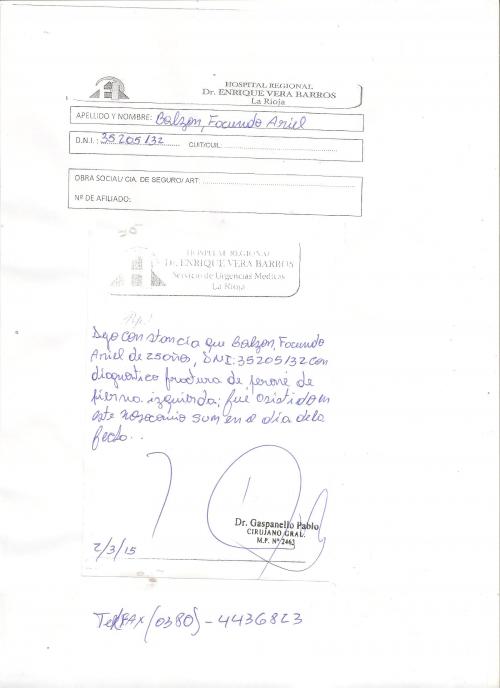 HOSPITAL REGIONAL
Dr. ENRIQUE VERA BARROS
La Rioja
APELLIDO Y NOMBRE: Balzon, Facundo Ariel
D.N.I.: 35205132 CUIT/CUIL:
OBRA SOCIAL/ CIA. DE SEGURO/ ART:
Nº DE AFILIADO:
HOSPITAL REGIONAL
Dr. ENRIQUE VERA BARROS
Servicio de Urgencias Medicas
La Rioja
Rp!
Dejo constancia que Balzon, Facundo
Ariel de 25 años, DNI: 35205132 con
diagnostico fractura de peroné de
pierna izquierda; fué asistido en
este nosocomio SUM en el día de la
fecha..
Dr. Gaspanello Pablo
CIRUJANO GRAL.
M.P. Nº 2463
2/3/15
Tel/FAX (0380)-4436823